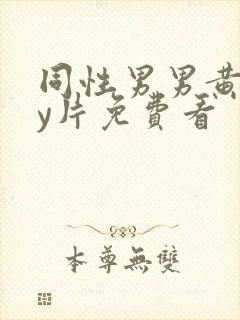 同性男男黄
y片免費看
本尊無雙